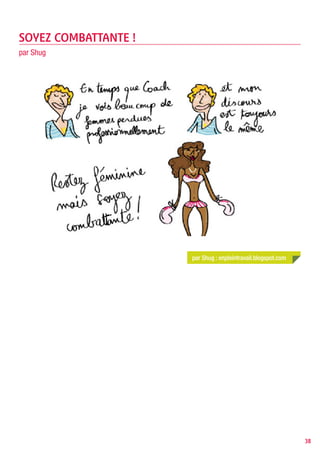 SOYEZ COMBATTANTE !
par Shug
En temps que Coach
je vois beaucoup de
femmes perdues
professionnellement
et mon
discours
est toujours
le même
Restez féminine
mais soyez
combattante !
par Shug : enpleintravail.blogspot.com
38